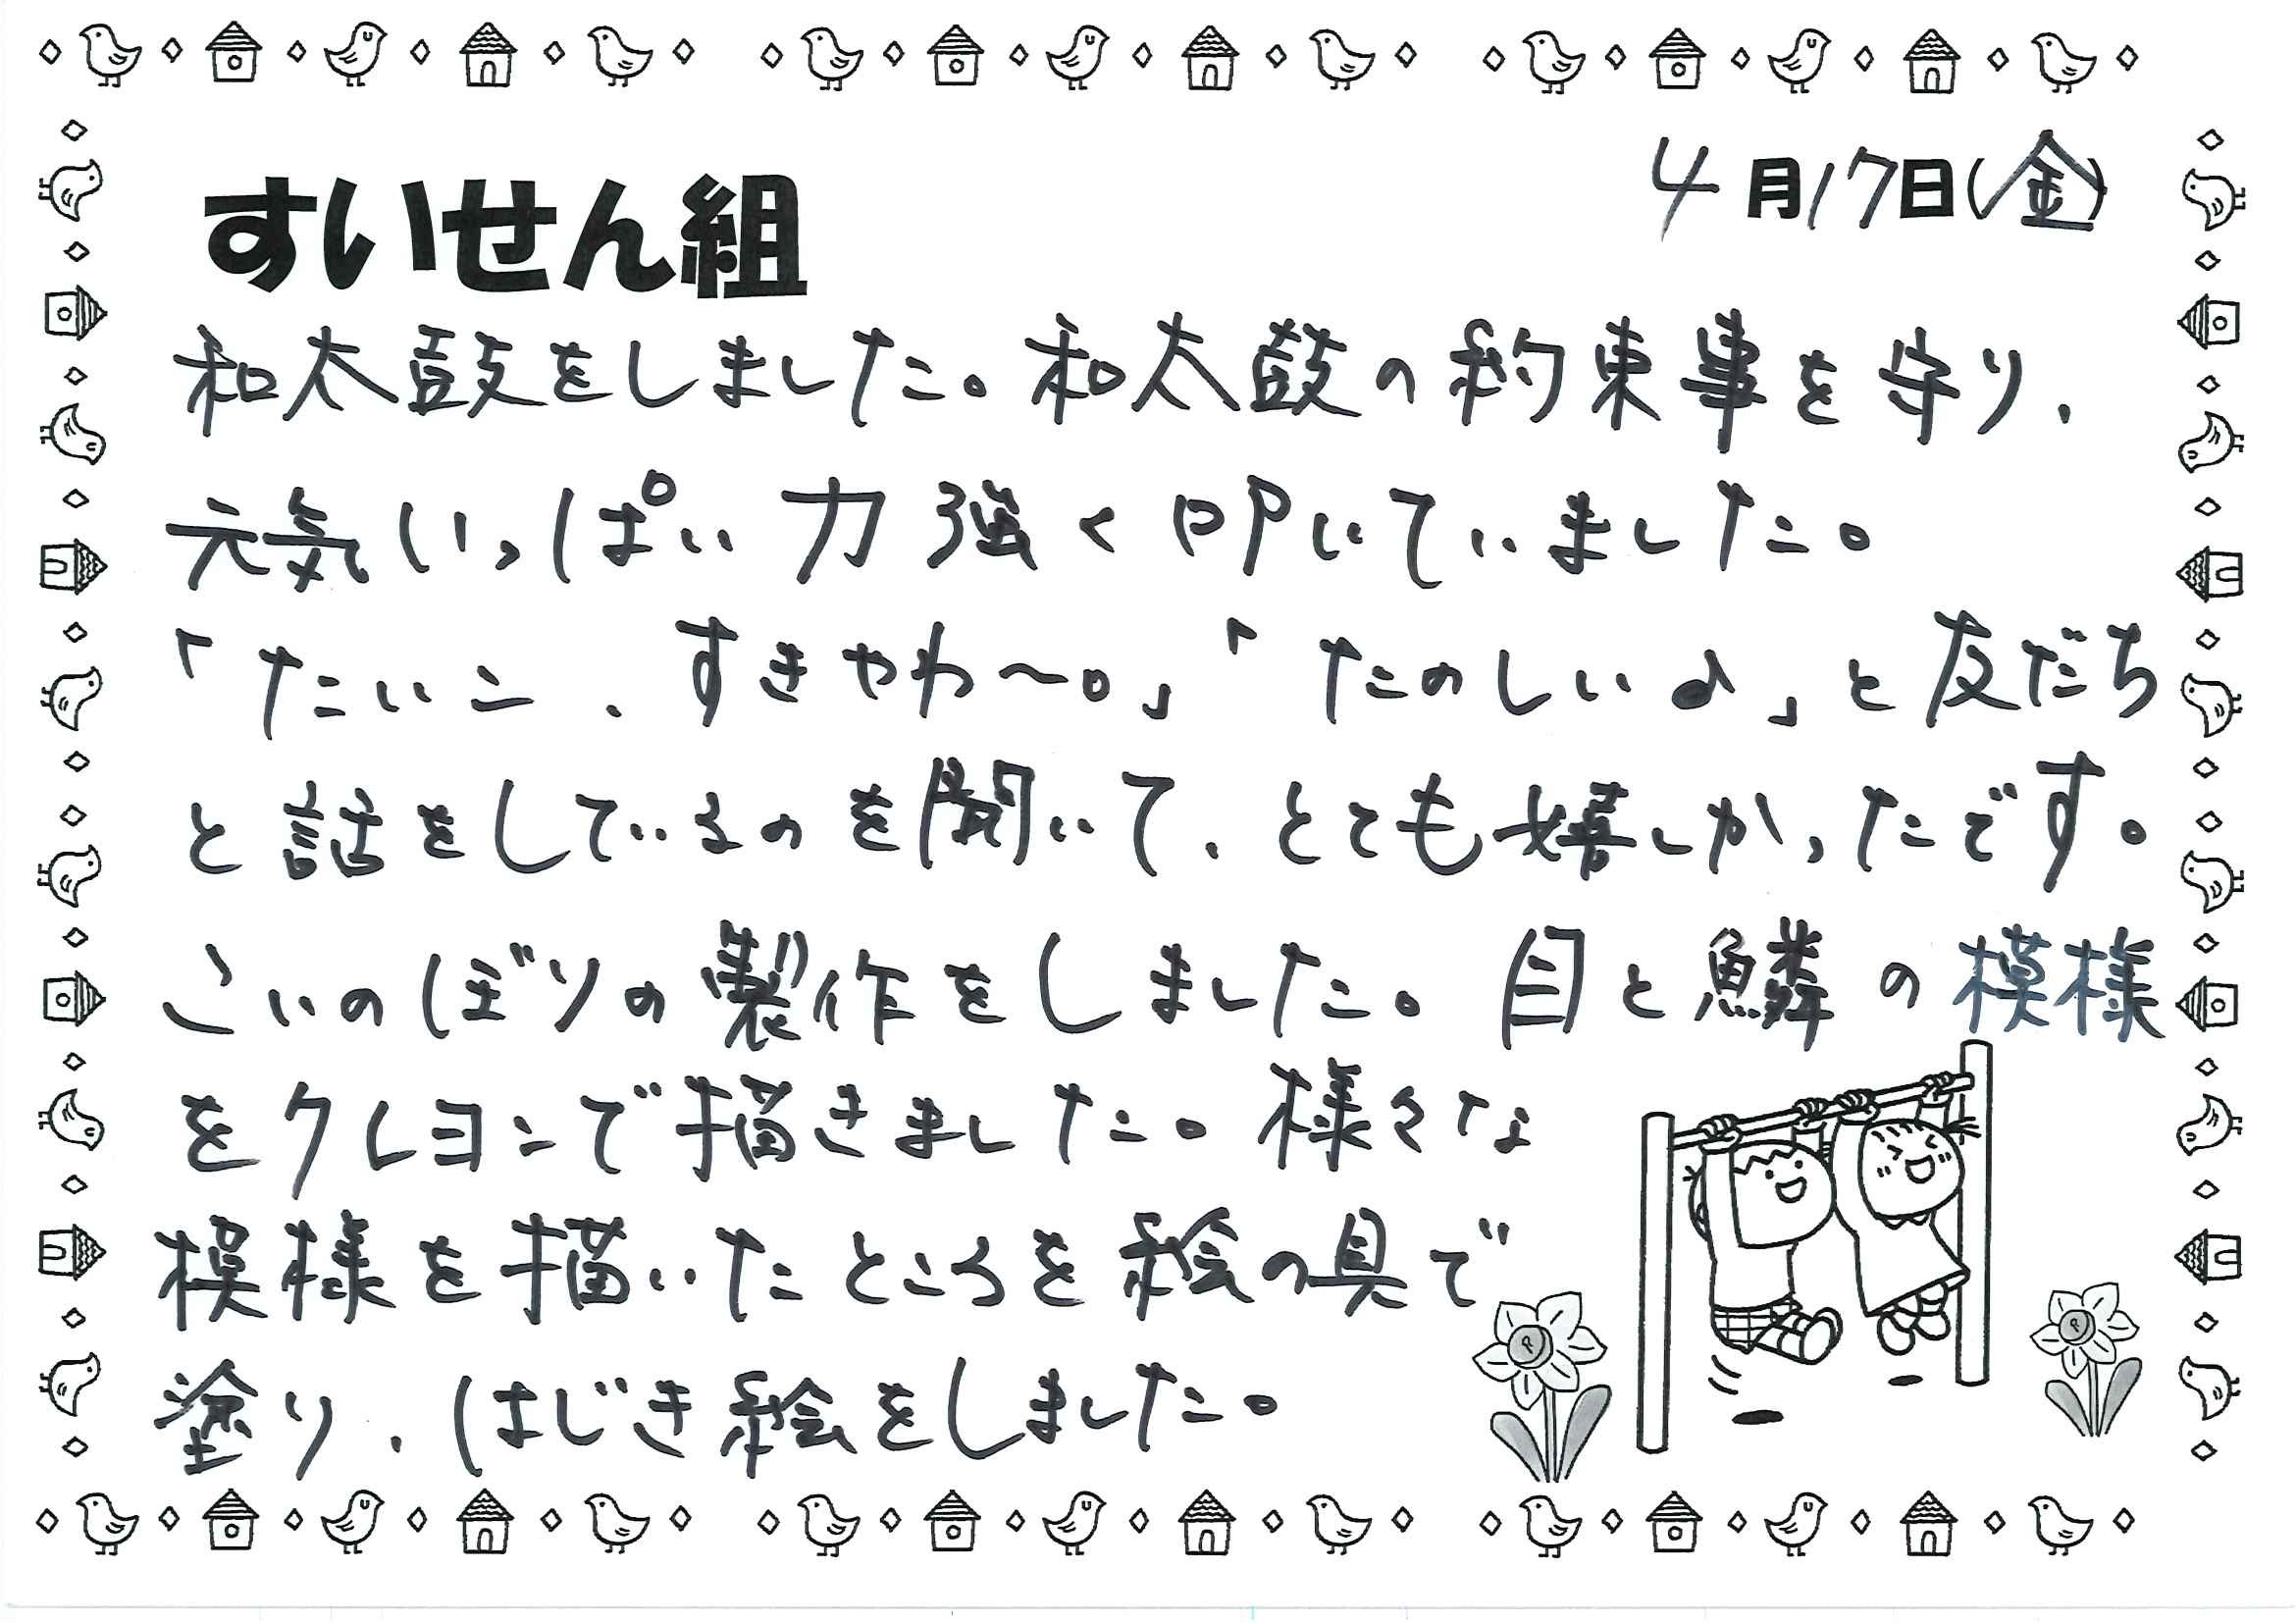 4月17日(金)
すいせん組
和太鼓をしました。和太鼓の約束事を守り、
元気いっぱい力強く叩いていました。
「たいこ、すきやわ〜。」「たのしい♪」と友だち
と話をしているのを聞いて、とても嬉しかったです。
こいのぼりの製作をしました。目と鱗の模様
をクレヨンで描きました。様々な
模様を描いたところを絵の具で
塗り、はじき絵をしました。